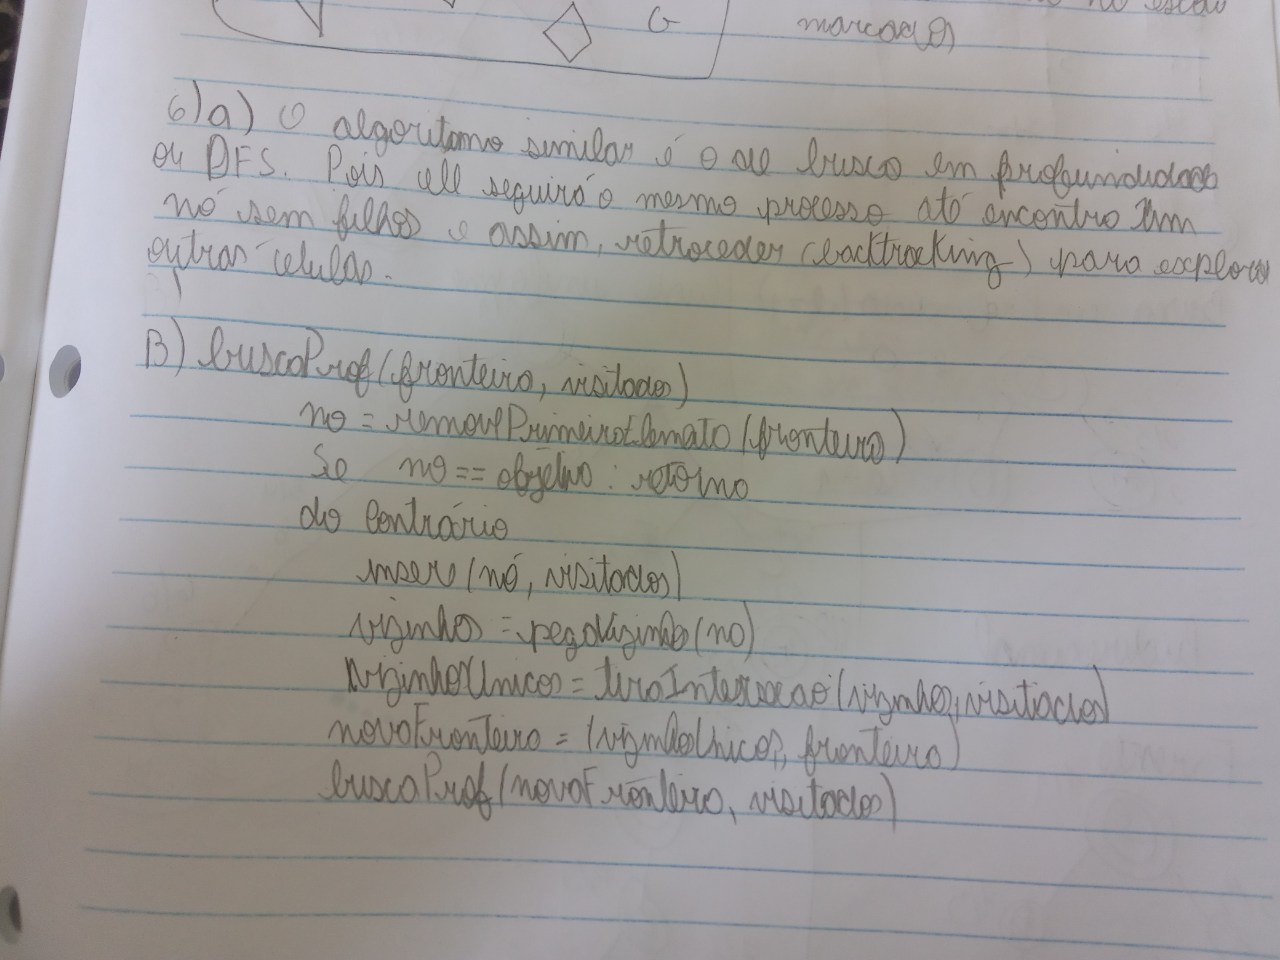 G
marcados
6)a) O algoritomo similar é o de busca em profundidade
ou DFS. Pois ele seguirá o mesmo processo até encontra um
nó sem filhos e assim, retroceder (backtracking) para explorar
outras células.
B) buscaProf(fronteira, visitados)
no = removePrimeiroElemato(fronteira)
Se no == objetivo : retorna
do contrário
insere(nó, visitados)
vizinhos = pegaVizinhos(no)
vizinhosUnicos = tiraIntersecao(vizinhos, visitados)
novaFronteira = (vizinhosUnicos, fronteira)
buscaProf(novaFronteira, visitados)